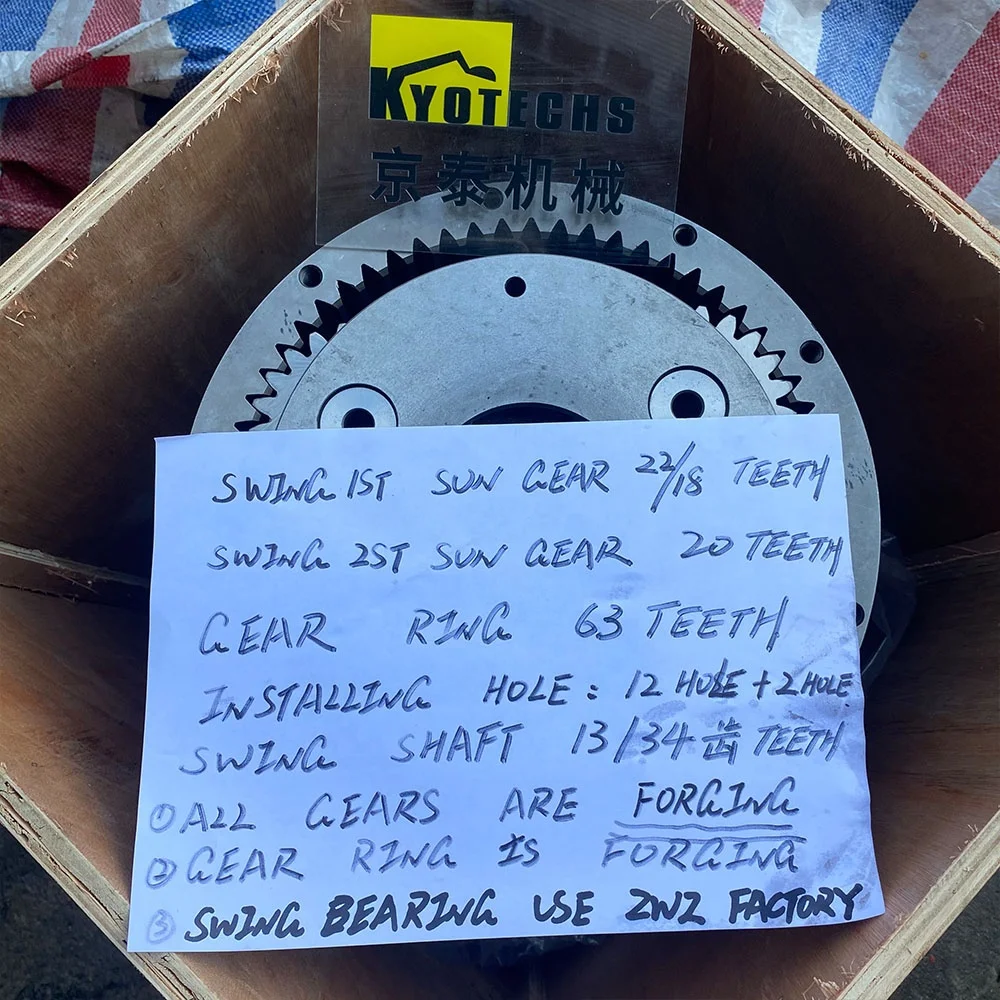 KYOTECHS
京泰机械
SWING 1ST SUN GEAR 22/18 TEETH
SWING 2ST SUN GEAR 20 TEETH
GEAR RING 63 TEETH
INSTALLING HOLE: 12 HOLE + 2 HOLE
SWING SHAFT 13/34 齿 TEETH
① ALL GEARS ARE FORGING
② GEAR RING IS FORGING
③ SWING BEARING USE ZWZ FACTORY